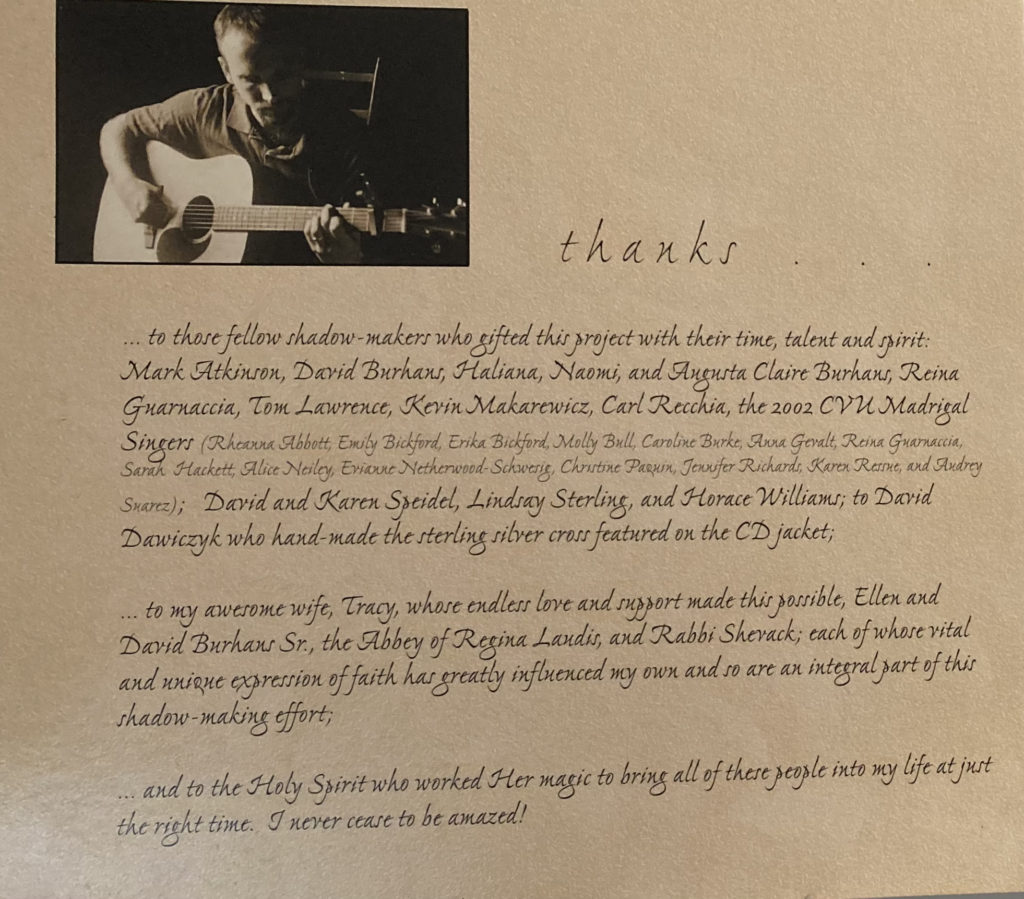 thanks . . .
... to those fellow shadow-makers who gifted this project with their time, talent and spirit:
Mark Atkinson, David Burhans, Haliana, Naomi, and Augusta Claire Burhans, Reina
Guarnaccia, Tom Lawrence, Kevin Makarewicz, Carl Recchia, the 2002 CVU Madrigal
Singers (Rheanna Abbott, Emily Bickford, Erika Bickford, Molly Bull, Caroline Burke, Anna Gevalt, Reina Guarnaccia,
Sarah Hackett, Alice Neiley, Evianne Netherwood-Schwesig, Christine Paquin, Jennifer Richards, Karen Ressue, and Audrey
Suarez); David and Karen Speidel, Lindsay Sterling, and Horace Williams; to David
Dawiczyk who hand-made the sterling silver cross featured on the CD jacket;
... to my awesome wife, Tracy, whose endless love and support made this possible, Ellen and
David Burhans Sr., the Abbey of Regina Laudis, and Rabbi Shevack; each of whose vital
and unique expression of faith has greatly influenced my own and so are an integral part of this
shadow-making effort;
... and to the Holy Spirit who worked Her magic to bring all of these people into my life at just
the right time. I never cease to be amazed!